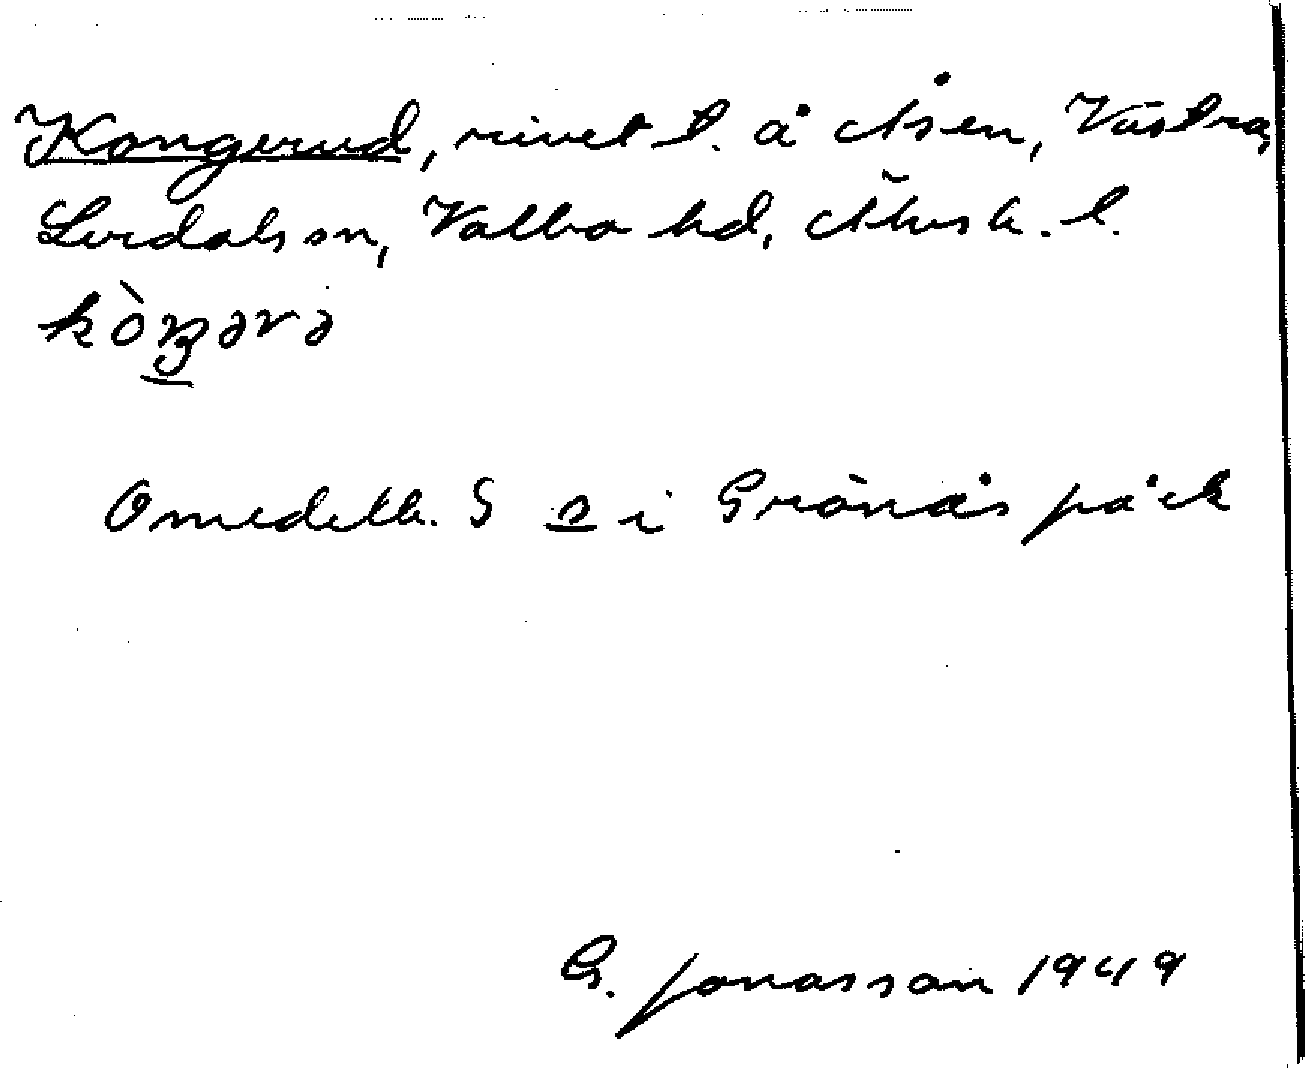 Kongerud, rivet t. å Åsen, Västra,
Lerdals sn, Valbo hd, Älvsb. l.
kòŋərə
Omedelb. S o i Grönås påck
G. Jonasson 1949